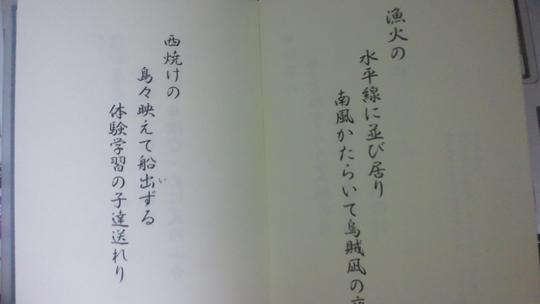 漁火の
水平線に並び居り
南風かたらいて烏賊凪の
西焼けの
島々映えて船出ずる
い
体験学習の子達送れり